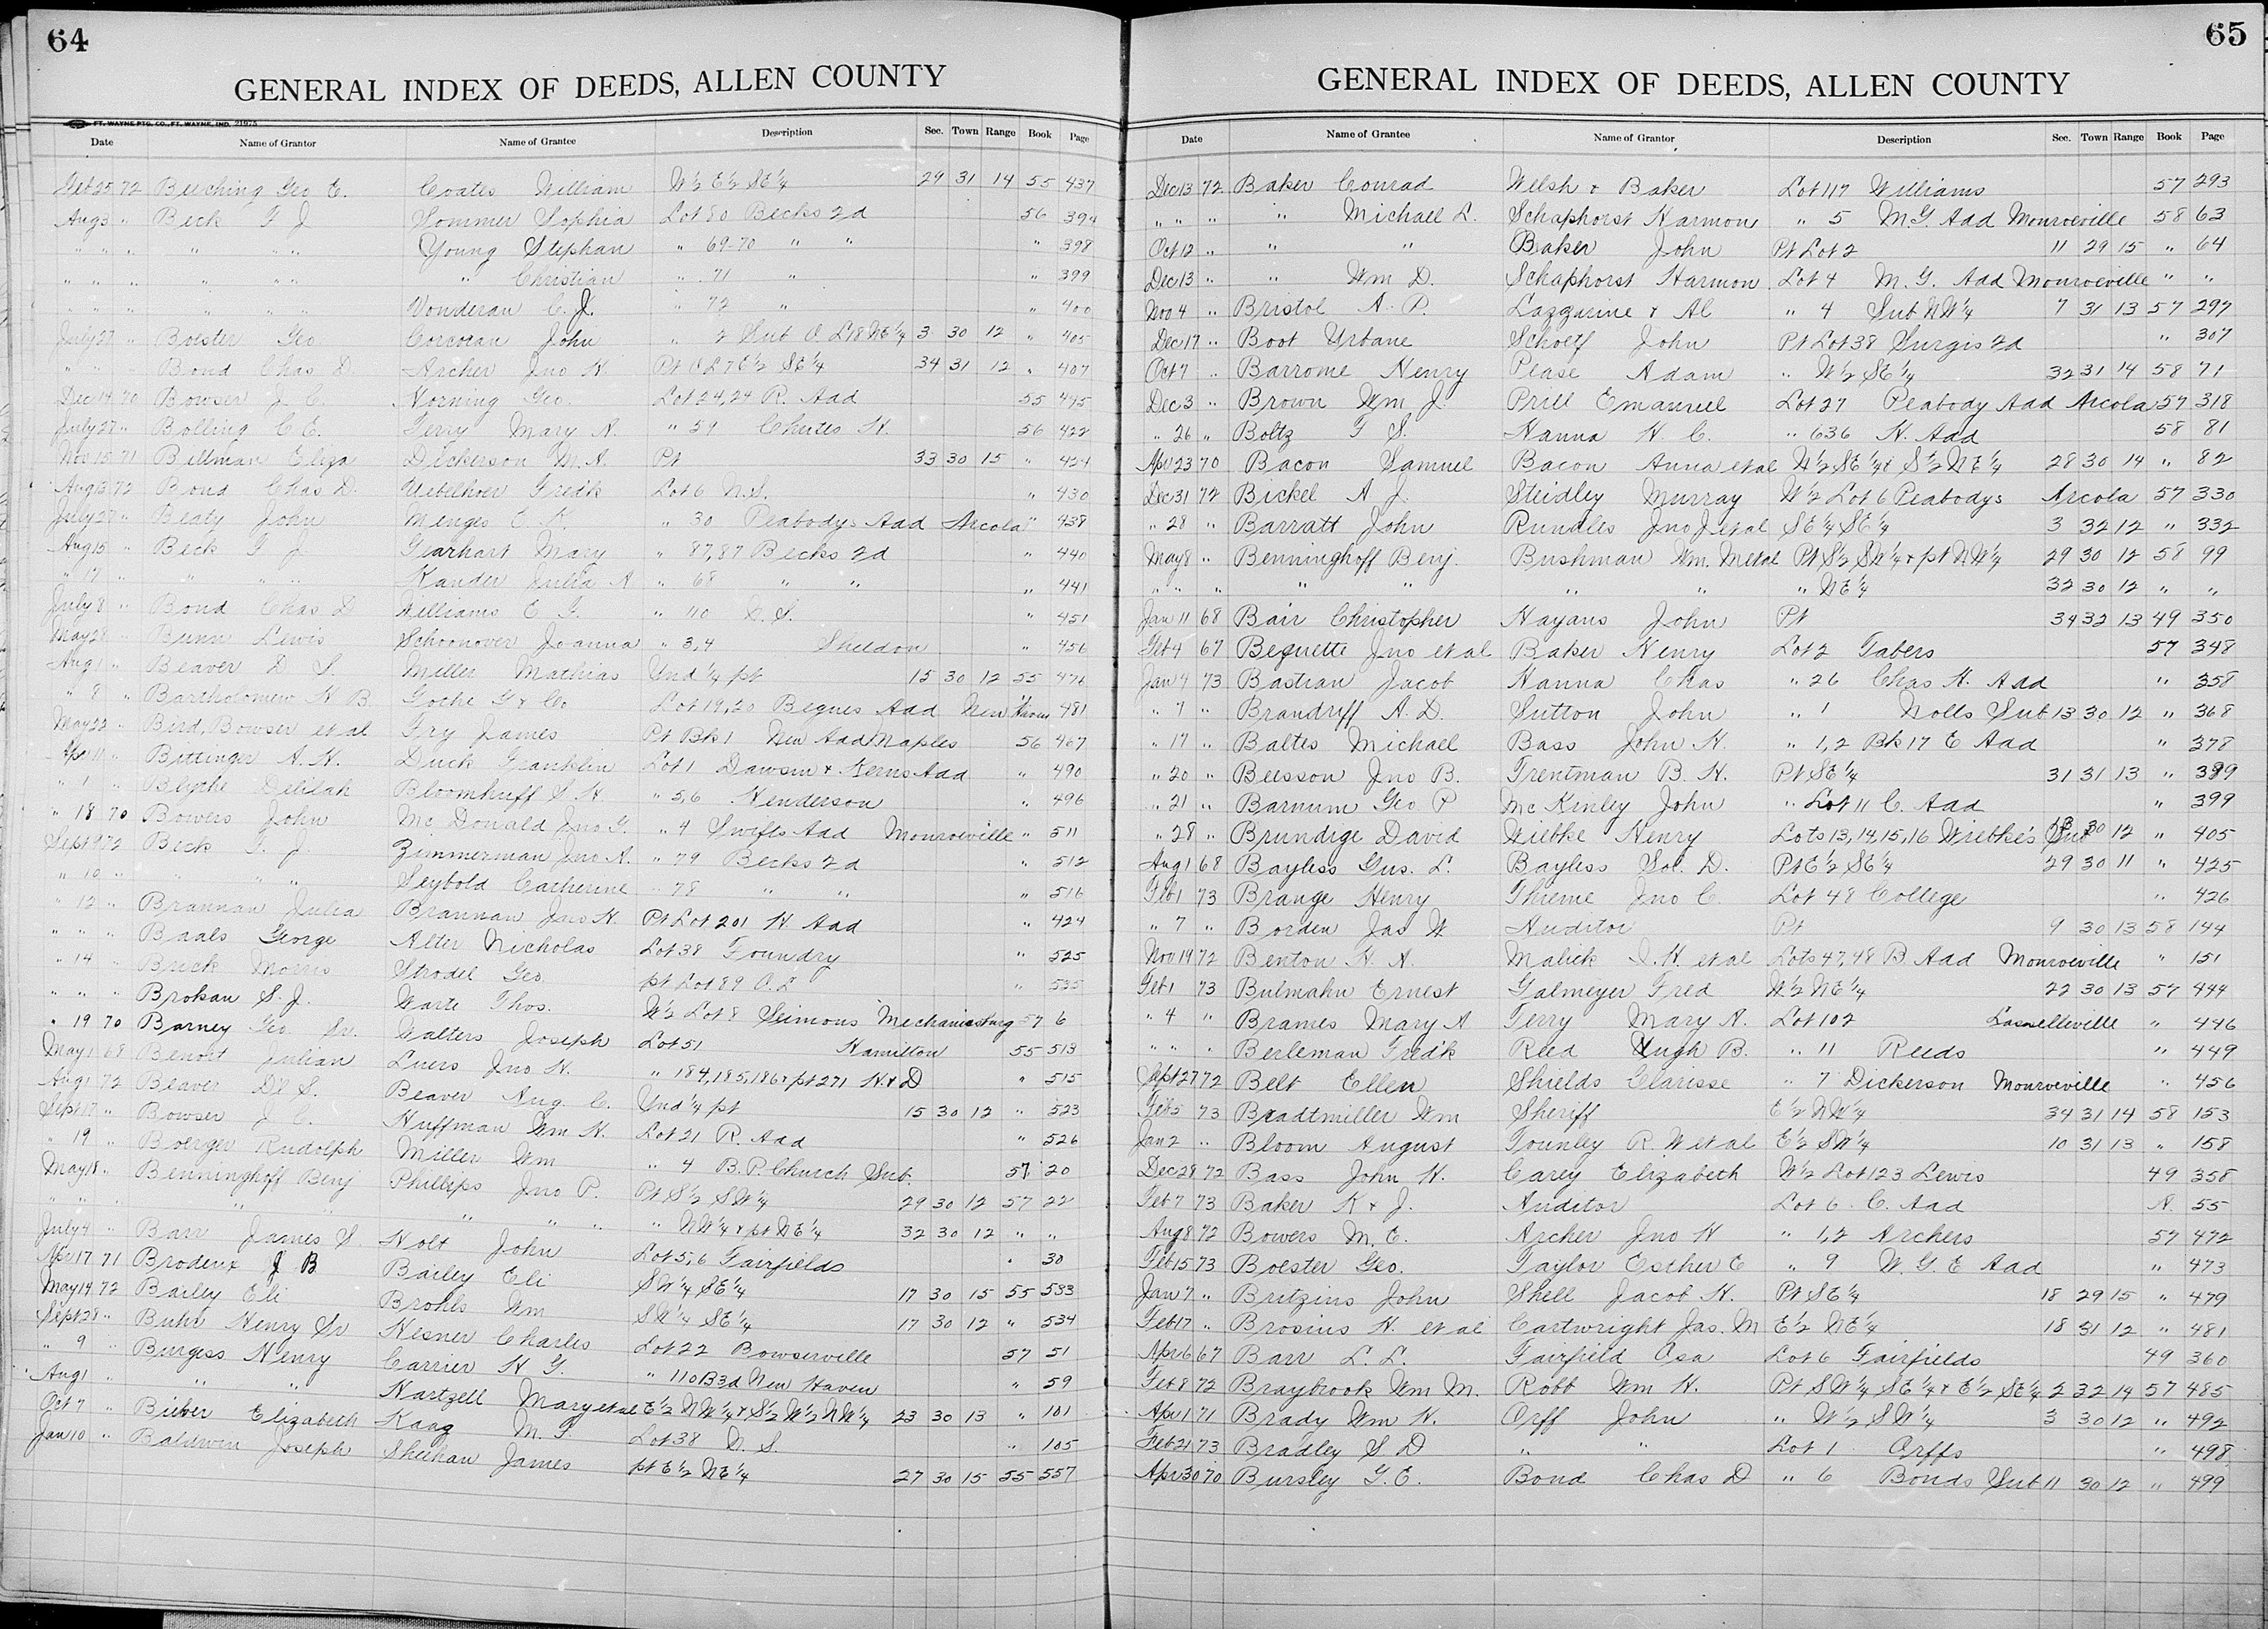 64
GENERAL INDEX OF DEEDS, ALLEN COUNTY
FT. WAYNE PTG. CO., FT. WAYNE, IND. 21975
Date Name of Grantor Name of Grantee Description Sec. Town Range Book Page
Feb 25 72 Beeching Geo E. Coates William W½ E½ SE¼ 29 31 14 55 437
Aug 3 " Beck F J Sommer Sophia Lot 80 Becks 2d 56 394
" " " " " " Young Stephan " 69-70 " " " 398
" " " " " " " Christian " 71 " " 399
" " " " " " Vonderau C. J. " 72 " " 400
July 27 " Boester Geo Corcoran John " 2 Sub O. L 18 NE¼ 3 30 12 " 405
" " Bond Chas D. Archer Jno H. Pt O L 7 E½ SE¼ 34 31 12 " 407
Dec 14 70 Bowser J. C. Horning Geo. Lot 24,24 R. Add 55 495
July 27 " Bolling C E. Terry Mary A. " 59 Chutes H. 56 422
Nov 15 71 Billman Eliza Dickerson M. A. Pt 33 30 15 " 424
Aug 13 72 Bond Chas D. Uebelhoer Fredk Lot 6 N. S. " 430
July 27 " Beaty John Menges E. K. " 30 Peabodys Add Arcola " 438
Aug 15 " Beck F J Gearhart Mary " 87,87 Becks 2d " 440
" 17 " " " " Kander Julia A " 68 " " " 441
July 8 " Bond Chas D Williams E F. " 110 C. S. " 451
May 28 " Bunn Lewis Schoonover Joanna " 3,4 Sheldon " 456
Aug 1 " Beaver D S. Miller Mathias Und ¼ pt 15 30 12 55 476
" 8 " Bartholomew H B Gothe G & Co Lot 19,20 Begues Add New Haven " 481
May 22 " Bird, Bowser et al Fry James Pt Bk 1 New Add Maples 56 467
Apr 11 " Bittinger A. H. Duck Franklin Lot 1 Dawson & Kerns Add " 490
" 1 " Blythe Delilah Bloomhuff S H. " 5,6 Henderson " 496
" 18 70 Bowers John Mc Donald Jno G. " 4 Swifts Add Monroeville " 511
Sept 9 72 Beck F. J. Zimmerman Jno A. " 79 Becks 2d " 512
" 10 " " " " Seybold Catherine " 78 " " " 516
" 12 " Brannan Julia Brannan Jno H. Pt Lot 201 H. Add " 424
" " " Baals George Alter Nicholas Lot 38 Foundry " 525
" 14 " Brick Morris Strodel Geo pt Lot 89 O. L " 535
" " " Brokan S. J. Warte Thos. W½ Lot 8 Simons Mechanicsburg 57 6
" 19 70 Barney Geo Sr. Walters Joseph Lot 51 Hamilton 55 513
May 1 68 Benoit Julian Luers Jno H. " 184,185,186 & pt 271 H. & D " 515
Aug 1 72 Beaver Dl S. Beaver Aug. C. Und ¼ pt 15 30 12 " 523
Sept 17 " Bowser J. C. Huffman Wm H. Lot 21 R. Add " 526
" 19 " Boerger Rudolph Miller Wm " 4 B. P. Church Sub. 57 20
May 18 " Benninghoff Benj Phillips Jno P. Pt S½ SW¼ 29 30 12 57 22
" " " " " " " " " NW¼ & pt NE¼ 32 30 12 " "
July 4 " Barr James S. Holt John Lot 5,6 Fairfields " 30
Apr 17 71 Brodeux J B Bailey Eli SW¼ SE¼ 17 30 15 55 533
May 14 72 Bailey Eli Brohls Wm SW¼ SE¼ 17 30 12 " 534
Sept 28 " Buhr Henry Sr Hesner Charles Lot 22 Bowserville 57 51
" 9 " Burgess Henry Carrier H G. " 110 B 3d New Haven " 59
Aug 1 " " " Hartzell Mary et al E½ NW¼ & S½ W½ NW¼ 23 30 13 " 101
Oct 7 " Bieber Elizabeth Kaag M. F. Lot 38 N. S. " 105
Jan 10 " Baldwin Joseph Sheehan James pt E½ NE¼ 27 30 15 55 557
65
GENERAL INDEX OF DEEDS, ALLEN COUNTY
Date Name of Grantee Name of Grantor Description Sec. Town Range Book Page
Dec 13 72 Baker Conrad Welsh & Baker Lot 117 Williams 57 293
" " " " Michael L. Schaphorst Harmon " 5 M. G. Add Monroeville 58 63
Oct 12 " " " Baker John Pt Lot 2 11 29 15 " 64
Dec 13 " " Wm D. Schaphorst Harmon Lot 4 M. G. Add Monroeville " "
Nov 4 " Bristol A. P. Lazzarine & Al " 4 Sub NW¼ 7 31 13 57 297
Dec 17 " Boot Urbane Schoelf John Pt Lot 38 Surgis 2d " 307
Oct 7 " Barrome Henry Pease Adam " W½ SE¼ 32 31 14 58 71
Dec 3 " Brown Wm J. Prill Emanuel Lot 27 Peabody Add Arcola 57 318
" 26 " Boltz F S. Hanna H. C. " 636 H. Add 58 81
Apr 23 70 Bacon Samuel Bacon Anna et al W½ SE¼ & S½ NE¼ 28 30 14 " 82
Dec 31 72 Bickel A J. Steidley Murray W½ Lot 6 Peabodys Arcola 57 330
" 28 " Barratt John Rundles Jno J. et al SE¼ SE¼ 3 32 12 " 332
May 8 " Benninghoff Benj. Bushman Wm. M et al Pt S½ SW¼ & pt NW¼ 29 30 12 58 99
" " " " " " " " NE¼ 32 30 12 " "
Jan 11 68 Bair Christopher Hayans John Pt 34 32 13 49 350
Feb 4 67 Bequette Jno et al Baker Henry Lot 2 Tabers 57 348
Jan 7 73 Bastian Jacob Hanna Chas " 26 Chas H. Add " 358
" 7 " Brandriff A. D. Sutton John " 1 Nolls Sub 13 30 12 " 368
" 17 " Baltes Michael Bass John H. " 1,2 Bk 17 E Add " 378
" 20 " Beesson Jno B. Trentman B. H. Pt SE¼ 31 31 13 " 389
" 21 " Barnum Geo P Mc Kinley John " Lot 11 C. Add " 399
" 28 " Brundige David Wiebke Henry Lots 13,14,15,16 Wiebke's Sub 13 30 12 " 405
Aug 1 68 Bayless Gus. L. Bayless Sol. D. Pt E½ SE¼ 29 30 11 " 425
Feb 1 73 Brange Henry Thieme Jno C. Lot 48 College " 426
" 7 " Borden Jas W Auditor Pt 9 30 13 58 144
Nov 19 72 Benton H. A. Malick J. H. et al Lots 47,48 B. Add Monroeville " 151
Feb 1 73 Bulmahn Ernest Galmeyer Fred W½ NE¼ 22 30 13 57 444
" 4 " Brames Mary A Terry Mary A. Lot 102 Lasselleville " 446
" " " Berleman Fredk Reed Hugh B. " 11 Reeds " 449
Sept 27 72 Belt Ellen Shields Clarisse " 7 Dickerson Monroeville " 456
Feb 5 73 Bradtmiller Wm Sheriff E½ NW¼ 34 31 14 58 153
Jan 2 " Bloom August Tounley R. W et al E½ SW¼ 10 31 13 " 158
Dec 28 72 Bass John H. Carey Elizabeth W½ Lot 123 Lewis 49 358
Feb 7 73 Baker K & J. Auditor Lot 6 C. Add A. 55
Aug 8 72 Bowers M. E. Archer Jno H " 1,2 Archers 57 472
Feb 15 73 Boester Geo. Taylor Esther C " 9 W. G. E Add " 473
Jan 7 " Britzius John Shell Jacob H. Pt SE¼ 18 29 15 " 479
Feb 17 " Brosius H. et al Cartwright Jas. M E½ NE¼ 18 31 12 " 481
Apr 6 67 Barr L. L. Fairfield Osa Lot 6 Fairfields 49 360
Feb 8 72 Braybrook Wm M. Robb Wm H. Pt SW¼ SE¼ & E½ SE¼ 2 32 14 57 485
Apr 1 71 Brady Wm H. Orff John " W½ SW¼ 3 30 12 " 492
Feb 21 73 Bradley S. D " " Lot 1 Orffs " 498
Apr 30 70 Bursley G. E. Bond Chas D " 6 Bonds Sub 11 30 12 " 499